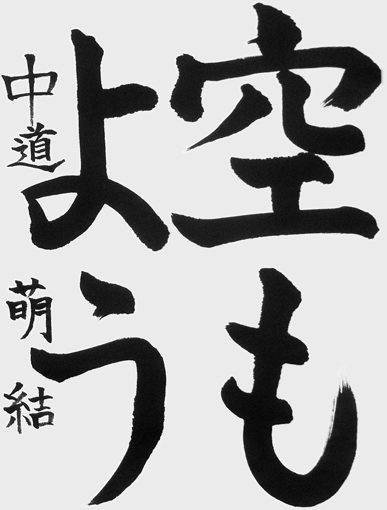 空も
よう
中道 萌結